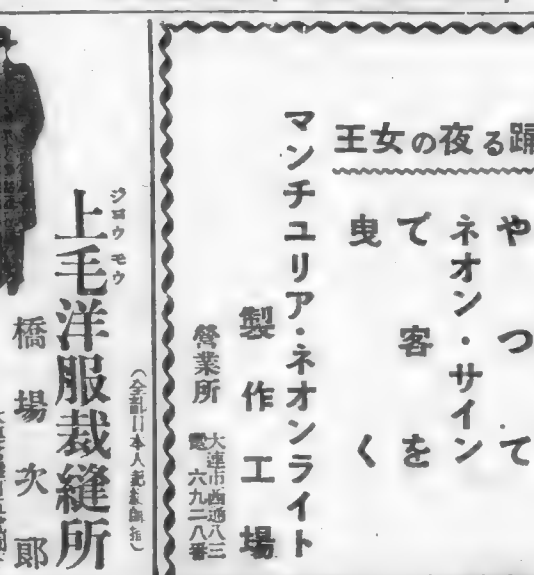 踊る夜の女王
やつて
ネオン・サイン
で客を
曳く
マンチユリア・ネオンライト
製作工場
營業所
大連市西通八三
電六九二八番
ジヨウモウ
上毛洋服裁縫所
橋場次郎